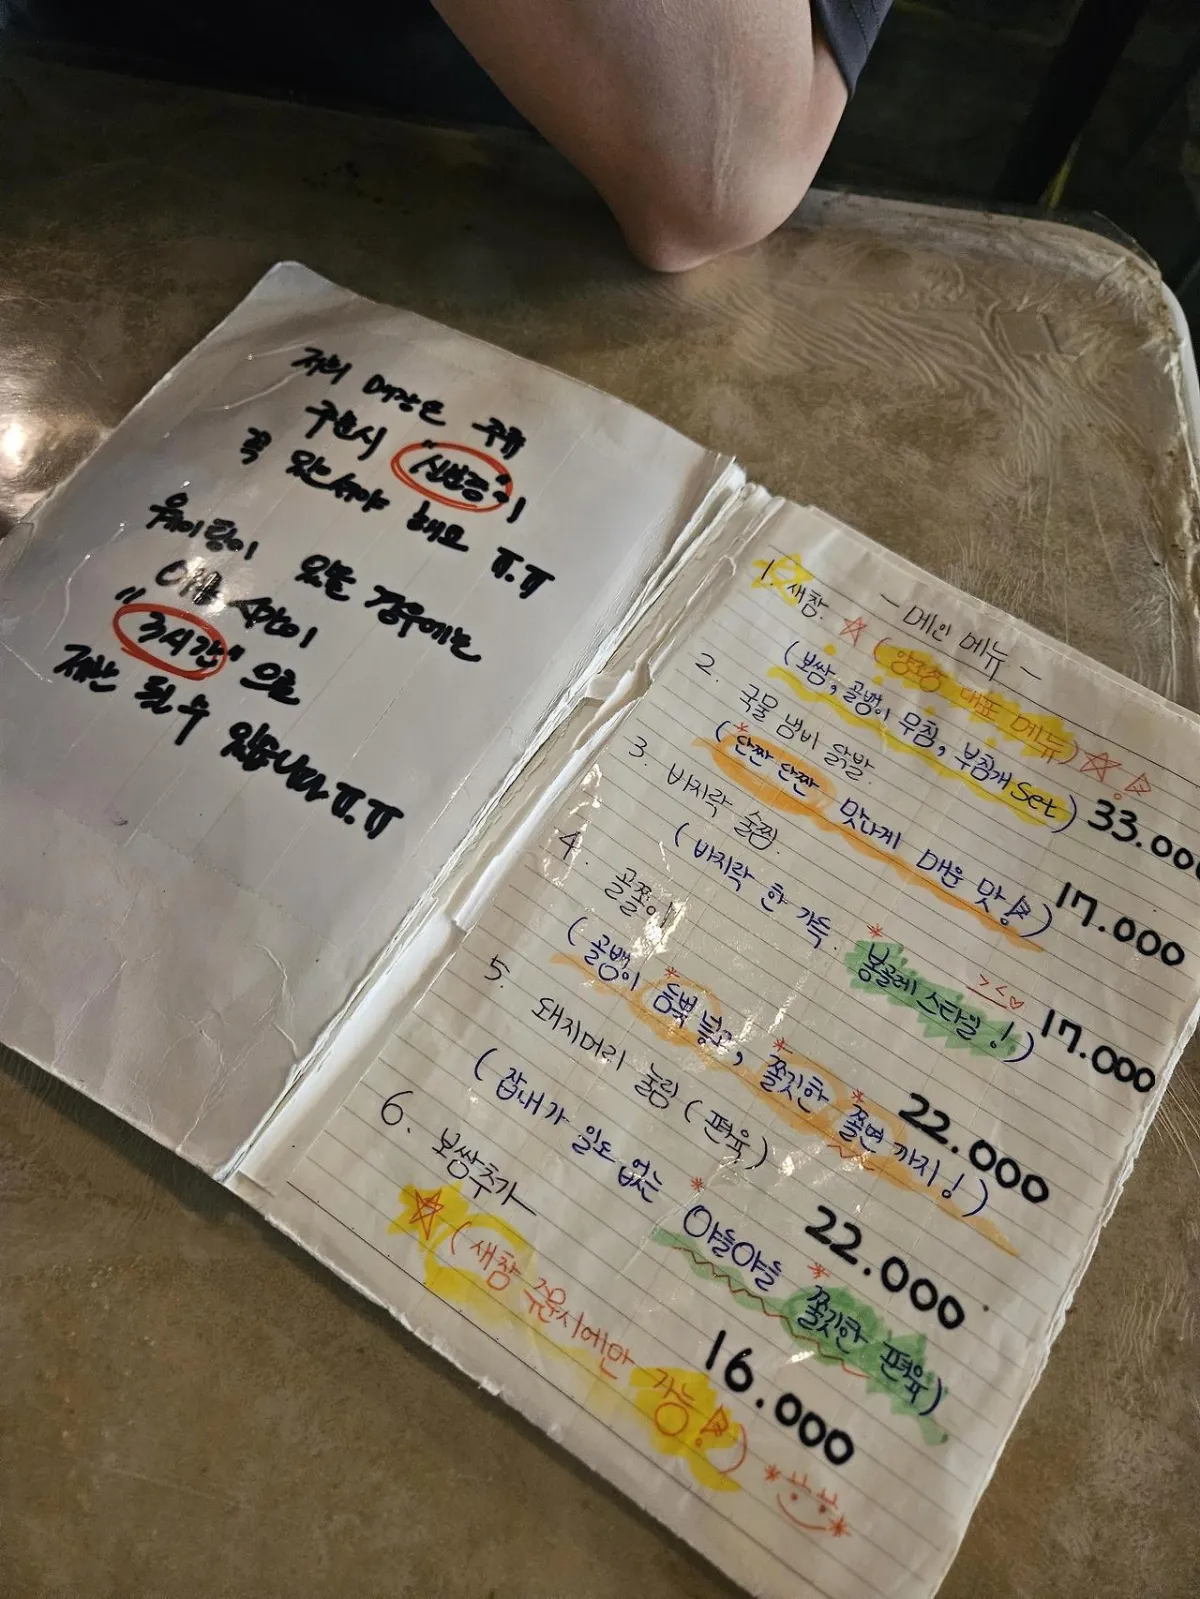 저희 매장은 주류
주문시 "신분증"이
꼭 있으셔야 해요 ㅠ.ㅠ
웨이팅이 있을 경우에는
이용 시간이
"3시간"으로
제한 될 수 있습니다 ㅠ.ㅠ
- 메인 메뉴 -
1. 새참. (양조장 대표 메뉴)
(보쌈, 골뱅이 무침, 부침개 Set) 33.000
2. 국물 냄비 닭발.
(단짠 단짠 맛나게 매운 맛!) 17.000
3. 바지락 술찜.
(바지락 한 가득. 봉골레 스타일!) ><♡ 17.000
4. 골쫄이
(골뱅이 듬뿍 넣고, 쫄깃한 쫄면 까지!) 22.000
5. 돼지머리 눌림 (편육)
(잡내가 일도 없는 야들야들 쫄깃한 편육) 22.000
6. 보쌈추가
(새참 주문시에만 가능!) 16.000